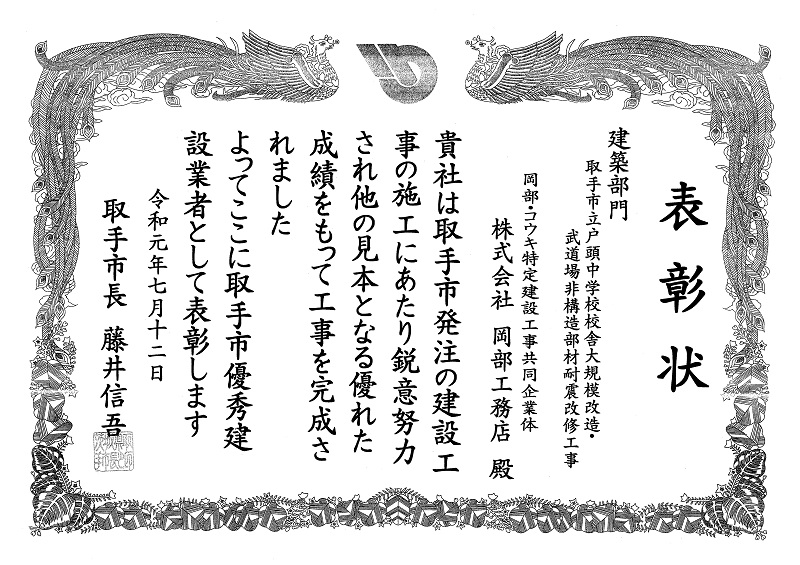 表彰状
建築部門
取手市立戸頭中学校校舎大規模改造・
武道場非構造部材耐震改修工事
岡部・コウキ特定建設工事共同企業体
株式会社 岡部工務店 殿
貴社は取手市発注の建設工
事の施工にあたり鋭意努力
され他の見本となる優れた
成績をもって工事を完成さ
れました
よってここに取手市優秀建
設業者として表彰します
令和元年七月十二日
取手市長 藤井信吾